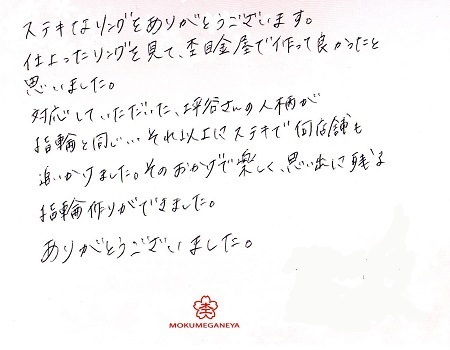 ステキなリングをありがとうございます。
仕上ったリングを見て、杢目金屋で作って良かったと
思いました。
対応していただいた、坪谷さんの人柄が
指輪と同じ…それ以上にステキで何店舗も
追いかけました。そのおかげで楽しく、思い出に残る
指輪作りができました。
ありがとうございました。
杢
MOKUMEGANEYA